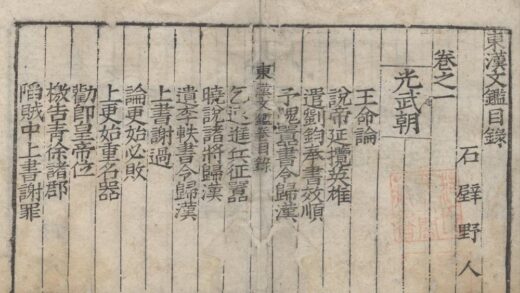 東漢文鑑目錄
石壁野人
卷之一
光武朝
王命論
說帝延攬英雄
遣劉鈞奉書效順
子隗囂書令歸漢
東漢文鑑卷目錄
乞退進兵征囂
曉說諸將歸漢
遺李軼書令歸漢
上書謝過
論更始必敗
上更始重名器
勸即皇帝位
檄告青徐諸郡
陷賊中上書謝罪